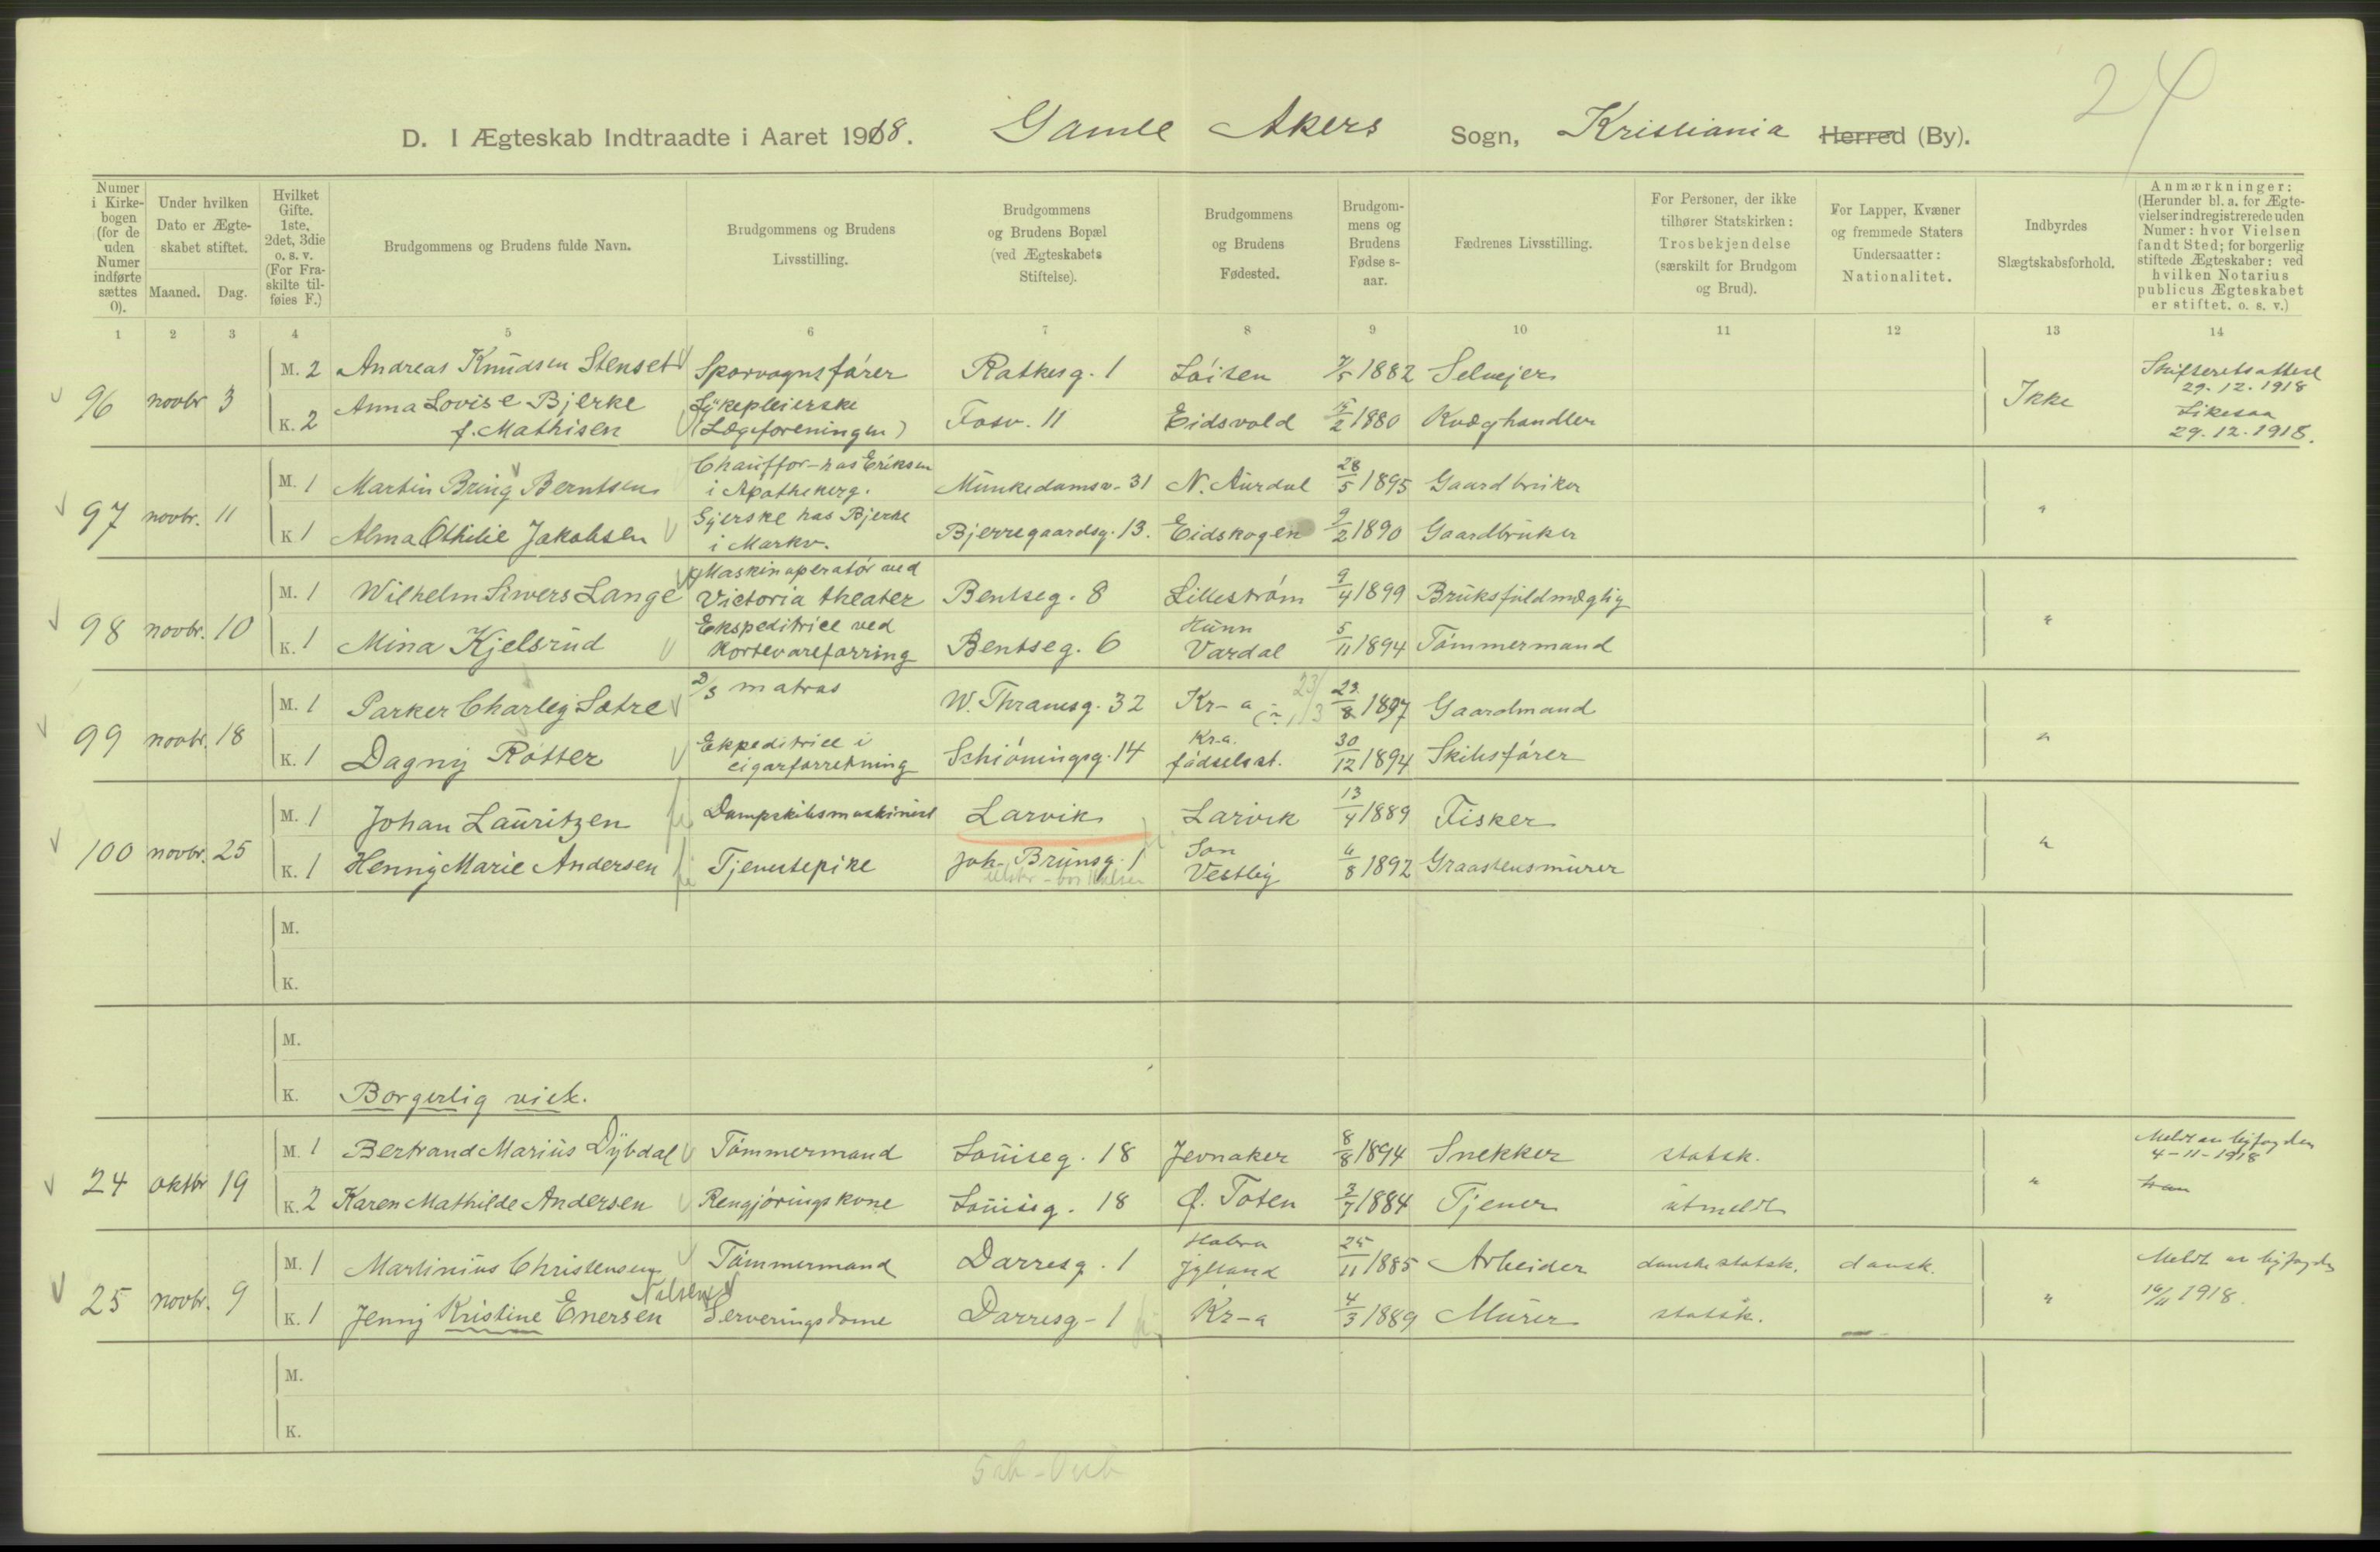 24
D. I Ægteskab Indtraadte i Aaret 1918. Gamle Akers Sogn, Kristiania Herred (By).
Numer i Kirkebogen (for de uden Numer indførte sættes 0).
Under hvilken Dato er Ægteskabet stiftet.
Maaned. Dag.
Hvilket Gifte. 1ste, 2det, 3die o. s. v. (For Fraskilte tilføies F.)
Brudgommens og Brudens fulde Navn.
Brudgommens og Brudens Livsstilling.
Brudgommens og Brudens Bopæl (ved Ægteskabets Stiftelse).
Brudgommens og Brudens Fødested.
Brudgommens og Brudens Fødselsaar.
Fædrenes Livsstilling.
For Personer, der ikke tilhører Statskirken: Trosbekjendelse (særskilt for Brudgom og Brud).
For Lapper, Kvæner og fremmede Staters Undersaatter: Nationalitet.
Indbyrdes Slægtskabsforhold.
Anmærkninger: (Herunder bl. a. for Ægtevielser indregistrerede uden Numer: hvor Vielsen fandt Sted; for borgerlig stiftede Ægteskaber: ved hvilken Notarius publicus Ægteskabet er stiftet. o. s. v.)
1 2 3 4 5 6 7 8 9 10 11 12 13 14
96 novbr 3
M. 2 Andreas Knudsen Stenset Sporvognsfører Ratkesg. 1 Løiten 1882 Selveier Ikke Skifteretsattest 29.12.1918
K. 2 Anna Lovise Bjerke f. Mathisen Sykepleierske (Lægeforeningen) Fosv. 11 Eidsvold 15/2 1880 Kvæghandler Likesaa 29.12.1918.
97 novbr. 11
M. 1 Martin Bring Berntsen Chauffør hos Eriksen i Apotekerg. Munkedamsv. 31 N. Aurdal 28/5 1895 Gaardbruker "
K 1 Alma Othilie Jakobsen Syerske hos Bjerke i Markv. Bjerregaardsg. 13. Eidskogen 9/2 1890 Gaardbruker
98 novbr. 10
M. 1 Wilhelm Siwers Lange Maskinoperatør ved Victoria theater Bentseg. 8 Lillestrøm 9/4 1899 Bruksfuldmægtig "
K. 1 Mina Kjelsrud Ekspeditrice ved Kortevareforring Bentseg. 6 Hunn Vardal 5/11 1894 Tømmermand
99 novbr. 18
M. 1 Parker Charley Sætre D/S matros W. Thranesg. 32 Kr-a 23/8 1897 Gaardmand "
K. 1 Dagny Rotter Ekpeditrice i cigarforretning Schiøningsg. 14 Kr.a. fødselsst. 30/12 1894 Skibsfører
100 novbr. 25
M. 1 Johan Lauritzen Dampskibsmaskinist Larvik Larvik 13/4 1889 Fisker "
K. 1 Henny Marie Andersen Tjenestepike Joh. Brunsg. 1 Son Vestby 6/8 1892 Graastensmurer
M.
K.
M.
K. Borgerlig viet.
24 oktbr 19
M. 1 Bertrand Marius Dybdal Tømmermand Louiseg. 18 Jevnaker 8/8 1894 Snekker statsk. " 4-11-1918
K. 2 Karen Mathilde Andersen Rengjøringskone Louiseg. 18 Ø. Toten 3/7 1884 Tjener utmeldt
25 novbr. 9
M. 1 Martinius Christensen Tømmermand Darresg. 1 Jylland 25/11 1885 Arbeider danske statsk. dansk. " Meldt av byfogden
K. 1 Jenny Kristine Enersen Nilsen Serveringsdame Darresg-1 Kr-a 4/3 1889 Murer statsk. — 16/11 1918.
M.
K.